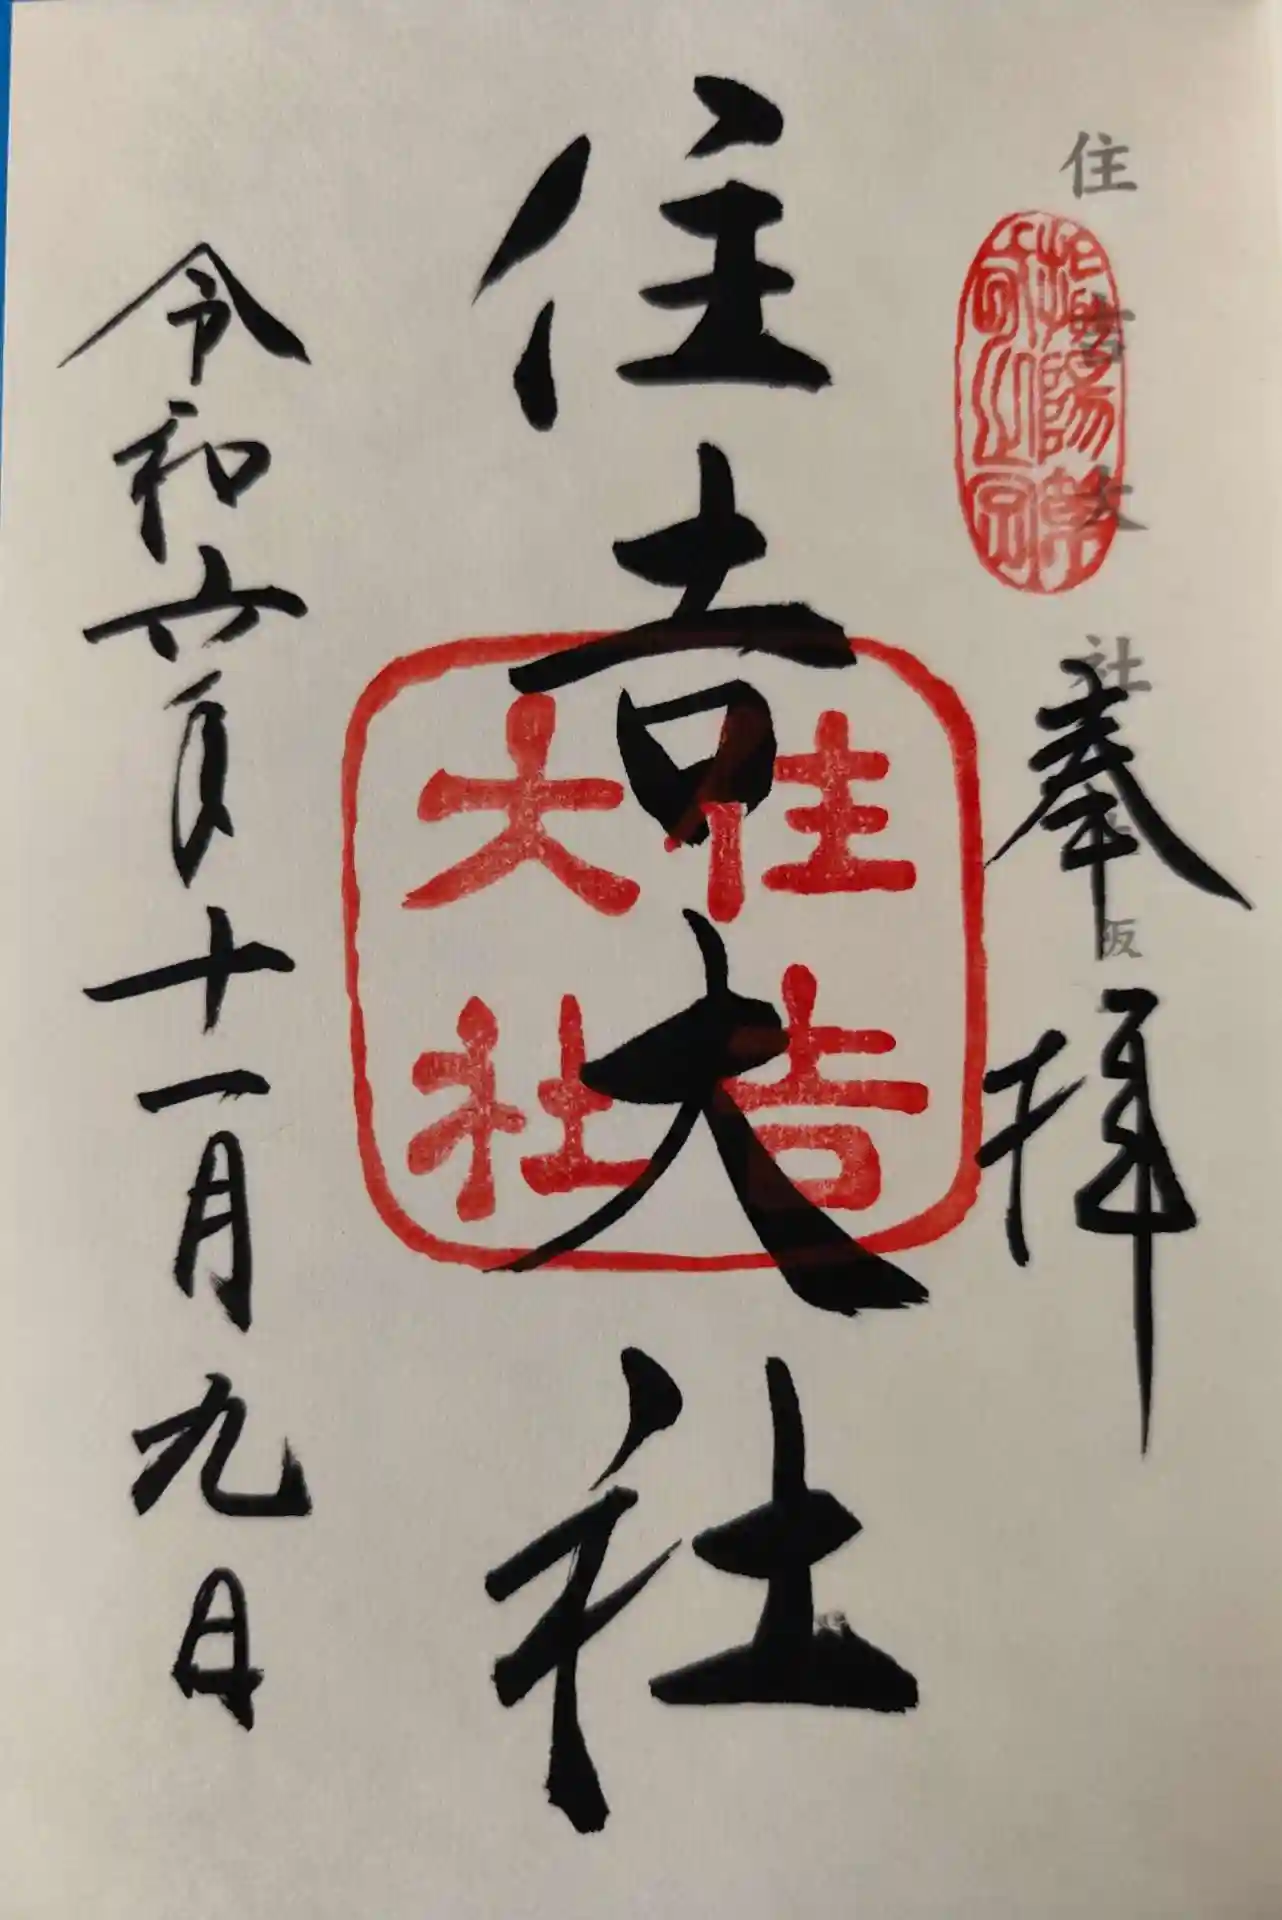 住吉大社 大阪
奉拝
住吉大社
住吉
大社
令和六年十一月九日